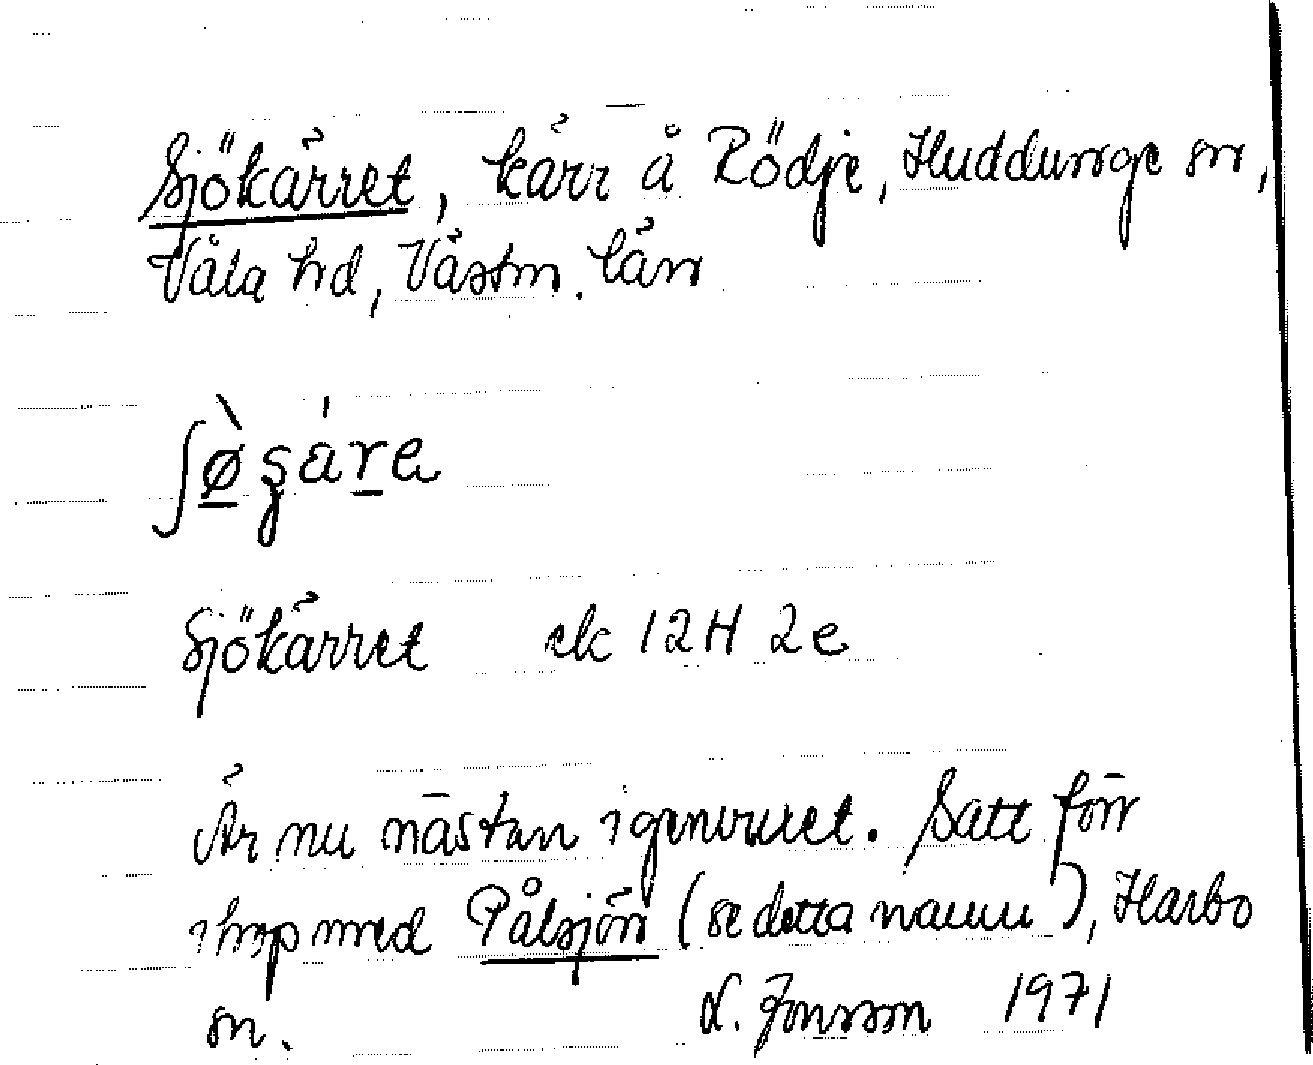 Sjökärret, kärr å Rödje, Huddunge sn,
Våla hd, Västm. län
ʃø̀ʂáre
Sjökärret ek 12H 2e
Är nu nästan igenvuxet. Satt förr
ihop med Pålsjön (se detta namn), Harbo
sn. L. Jonsson 1971